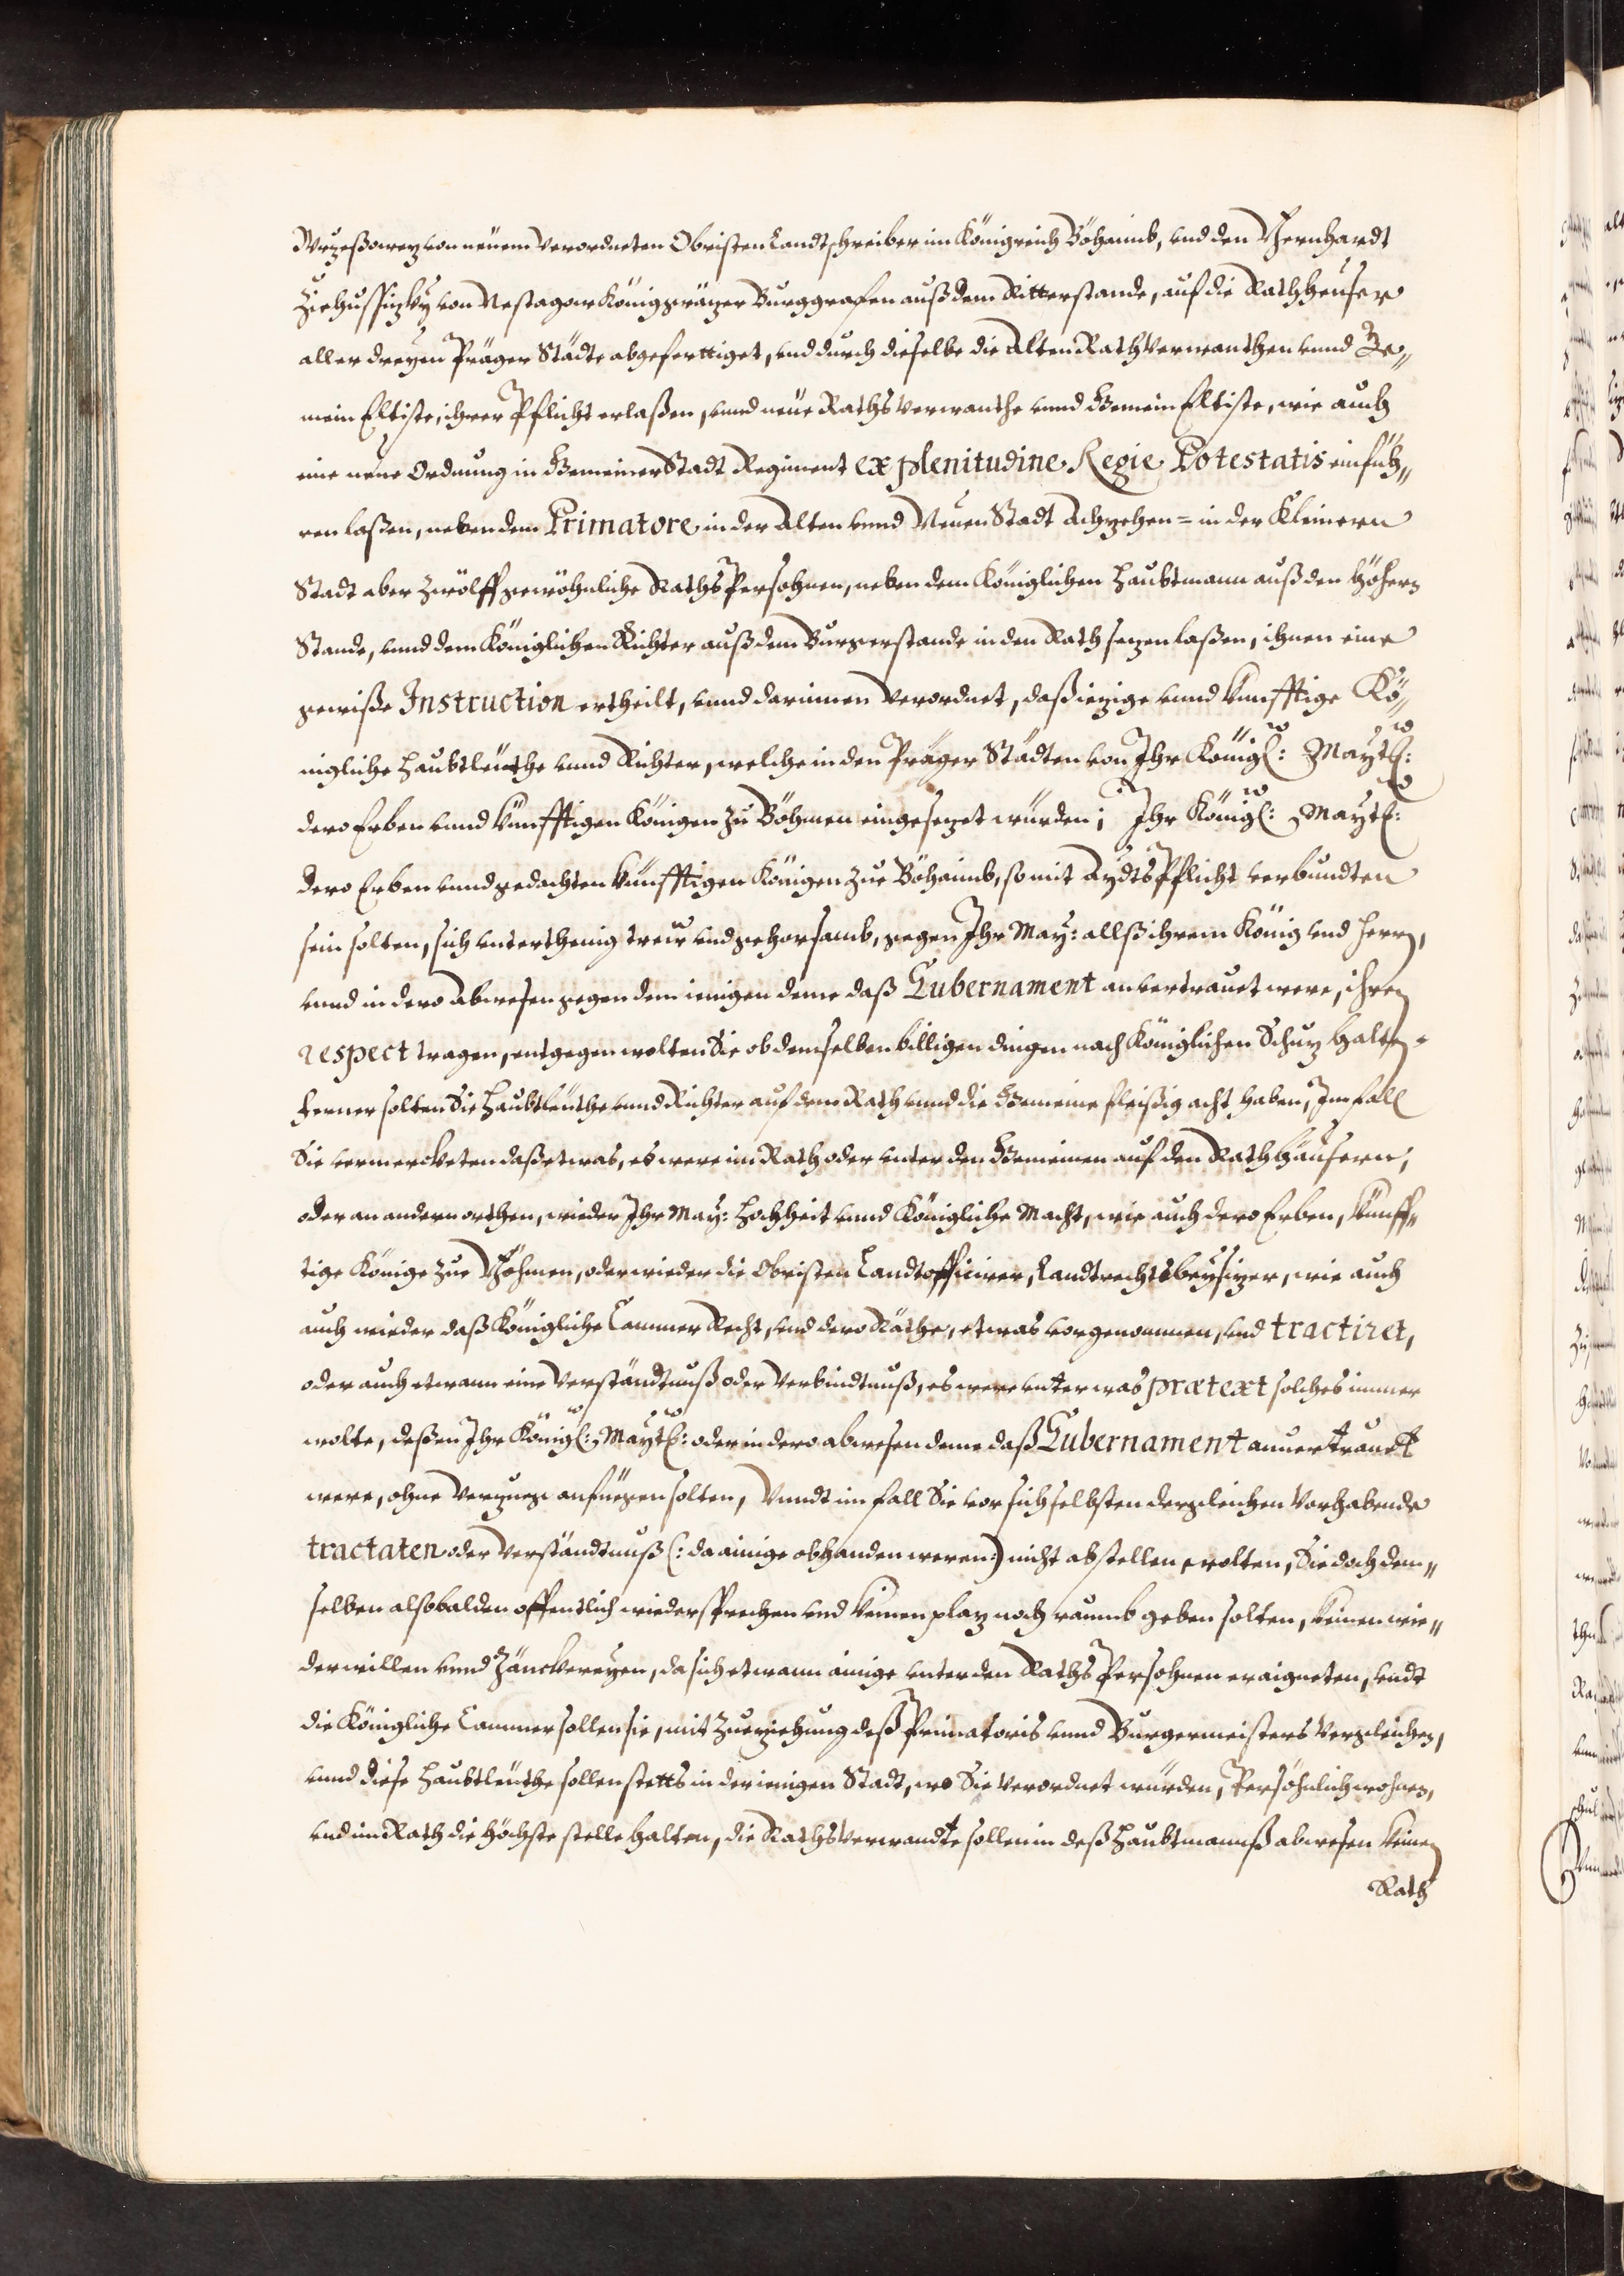 Wrzessowez von neuem verordneten Obristen Landtschreiber im Königreich Böhaimb, und den Bernhardt
von Nestagow Königgräzer Burggrafen auß dem Ritterstande, auf die Rathheuser
aller dreyen Präger Städte abgeferttiget, und durch dieselbe die Alten Rathverwanthen unnd Ge„
mein Eltiste, ihrer Pflicht erlaßen, unnd neue Rathsverwanthe unnd Gemein Eltiste, wie auch
eine neue Ordnung in Gemeiner Stadt Regiment ex plenitudine Regie Potestatis einfüh„
ren laßen, neben dem Primatore in der Alten unnd Neuen Stadt Achzehen= in der Kleinern
Stadt aber zwölff gewöhnliche Raths Persohnen, neben dem Königlichen Haubtmann auß den höhern
Stande, unnd dem Königlichen Richter auß dem Burgerstande in den Rath sezen laßen, ihnen eine
gewiße Instruction ertheilt, unnd darinnen verordnet, daß iezige unnd künfftige Kö„
nigliche Haubtleuthe unnd Richter, welche in den Präger Städten von Ihr Königl: Maytt:
dero Erben unnd künfftigen Königen zu Böhmen eingesezet würden; Ihr Königl: Maytt:
dero Erben unnd gedachten künfftigen Königen zue Böhaimb, so mit Aydts Pflicht verbundten
sein solten, sich unterthenig treu und gehorsamb, gegen Ihr May: allß ihrem König und Herrn,
unnd in dero Abwesen gegen dem ienigen deme daß Gubernament anvertrauet were, ihren
respect tragen, entgegen wolten Sie ob demselben billigen dingen nach Königlichen Schuz halten.
Ferner solten Sie Haubtleuthe unnd Richter auf dem Rath unnd die Gemeine fleißig acht haben, Im fall
Sie vermerckten daß etwas, es were im Rath oder unter den Gemeinen auf den Rathhäusern,
oder an andern orthen, wieder Ihr May: Hochheit unnd Königliche Macht, wie auch dero Erben, künff„
tige Könige zue Böhmen, oder wieder die Obristen Landtofficirer, Landtrechtsbeysizer, wie auch
auch wieder daß Königliche Cammer Recht, und dero Räthe, etwas vorgenommen, und tractiret,
oder auch etwann eine verständtnuß oder Verbindtnuß, es were unter was prætext solches immer
wolte, deßen Ihr Königl: Maytt: oder in dero abwesen deme daß Gubernament anvertraudt
were, ohne verzueg anfuegen solten, Unndt im fall Sie vor sich selbsten dergleichen vorhabende
tractaten oder verständtnuß (: da ainige obhanden weren:) nicht abstellen wolten, Sie doch dem„
selben alsobalden öffentlich wiedersprechen und keinen plaz noch raumb geben solten, keinen wie„
derwillen unnd Zänckereyen, da sich etwann ainige unter den Raths Persohnen eraigneten, undt
die Königliche Cammer sollen sie, mit Zueziehung deß Primatoris unnd Burgermeisters vergleichen,
unnd diese Haubtleuthe sollen stetts in derienigen Stadt, wo Sie verordnet würden, Persöhnlich wohnen,
und im Rath die höchste stelle halten, die Rathsverwandte sollen in deß Haubtmannß abwesen keinen
Rath